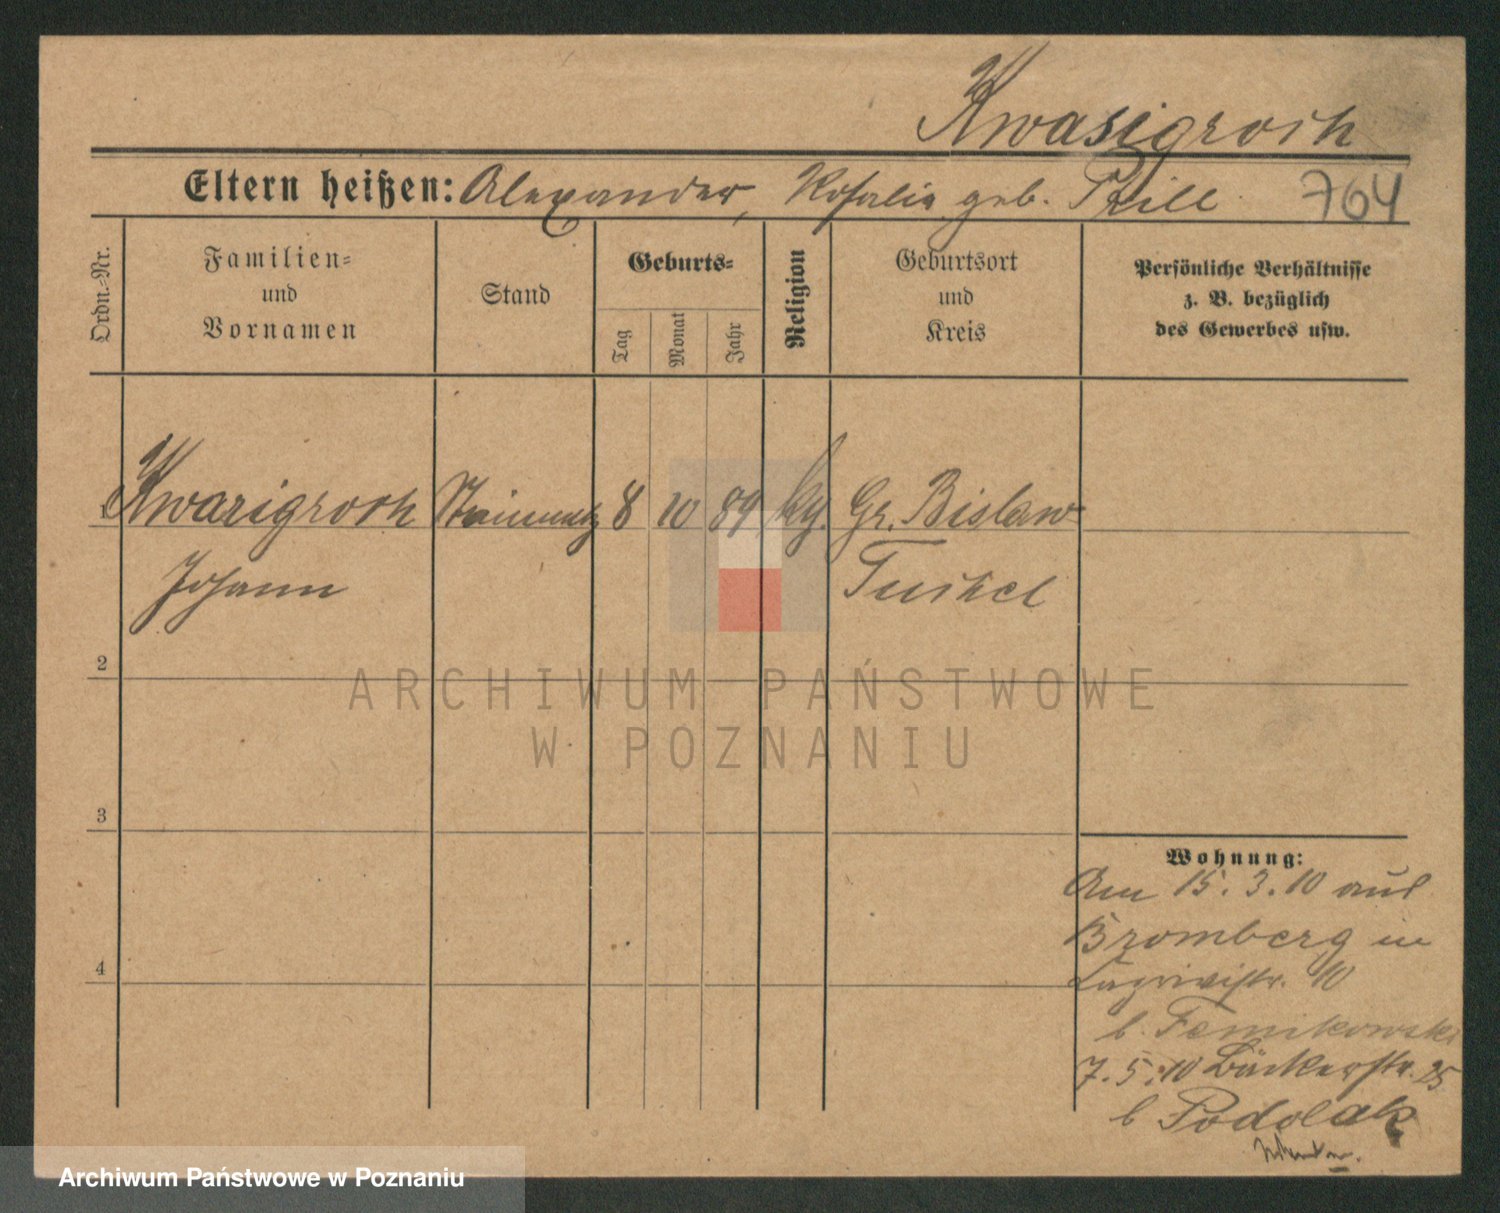 Kwasigroch
Eltern heißen: Alexander, Rosalie geb. Prill 764
Ordn.-Nr.
Familien-
und
Vornamen
Stand
Geburts-
Tag
Monat
Jahr
Religion
Geburtsort
und
Kreis
Persönliche Verhältnisse
z. B. bezüglich
des Gewerbes usw.
1 Kwasigroch Steinmetz 8 10 89 kg. Gr. Bislaw
Johann Tuchel
2
ARCHIWUM PAŃSTWOWE
W POZNANIU
3
Wohnung:
Am 15. 3. 10 aus
Bromberg in
10
b.
7. 5. 10 Bäckerstr. 25
b Podolak
4
Archiwum Państwowe w Poznaniu